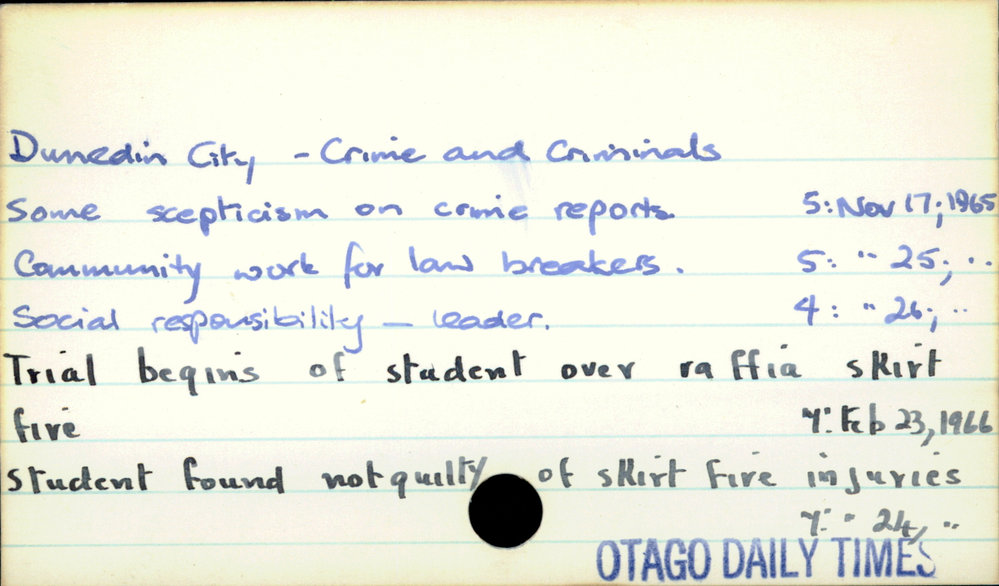 Dunedin City - Crime and Criminals
Some scepticism on crime reports. 5: Nov 17; 1965
Community work for law breakers. 5: " 25; ..
Social responsibility - leader. 4: " 26; ..
Trial begins of student over raffia skirt
fire 7: Feb 23, 1966
student found not guilty of skirt fire injuries
7: " 24, ..
OTAGO DAILY TIMES